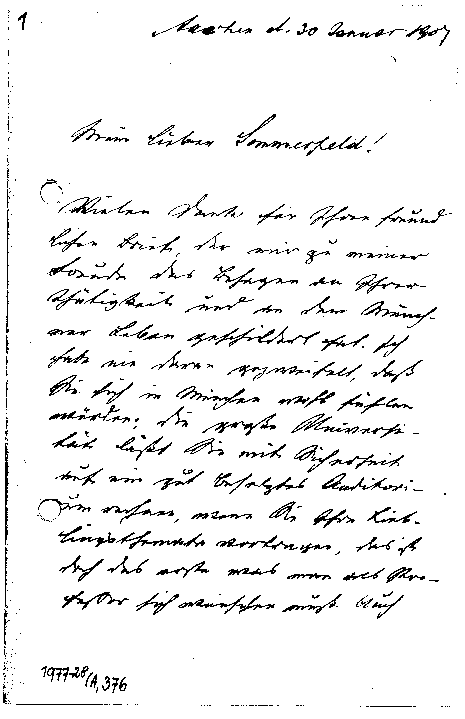 1
Aachen d. 30 Januar 1907
Mein lieber Sommerfeld!
Vielen Dank für Ihren freund
lichen Brief, der mir zu meiner
Freude das Behagen an Ihrer
Thätigkeit und an dem Münch-
ner Leben geschildert hat. Ich
habe nie daran gezweifelt, daß
Sie sich in München wohl fühlen
würden; die große Universi-
tät läßt Sie mit Sicherheit
auf ein gut besetztes Auditori-
um rechnen, wenn Sie Ihre Lieb-
lingsthemata vortragen, das ist
doch das erste was man als Pro-
fessor sich wünschen muß. Auch
1977-28/A,376